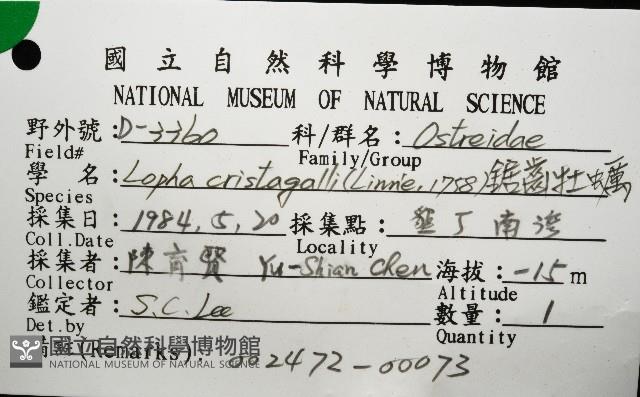 國立自然科學博物館
NATIONAL MUSEUM OF NATURAL SCIENCE
野外號：D-3360 科/群名：Ostreidae
Field# Family/Group
學 名：Lopha cristagalli (Linnie, 1758) 鋸齒牡蠣
Species
採集日：1984.5.20 採集點：墾丁南湾
Coll.Date Locality
採集者：陳育賢 Yu-Shian Chen 海拔：-15 m
Collector Altitude
鑑定者：S.C. Lee 數量：1
Det.by Quantity
(Remarks)：002472-00073
國立自然科學博物館
NATIONAL MUSEUM OF NATURAL SCIENCE